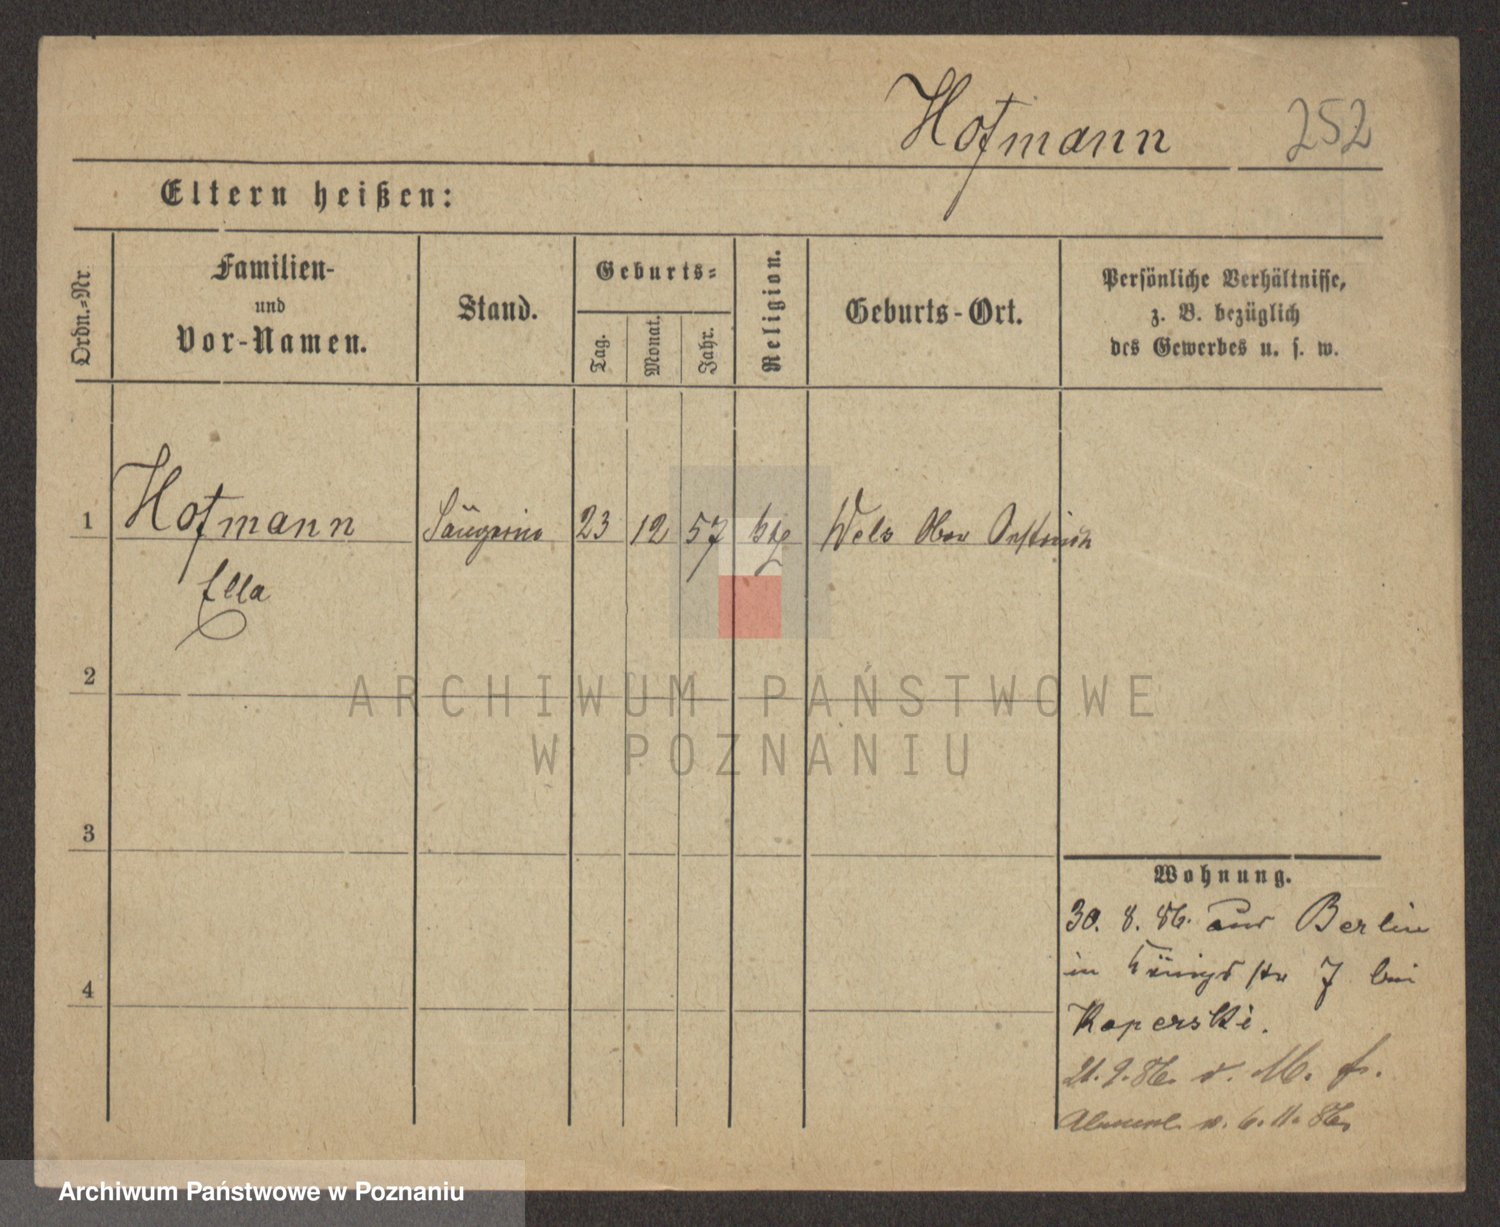 Hofmann 252
Eltern heißen:
Ordn.-Nr.
Familien-
und
Vor-Namen.
Stand.
Geburts-
Tag.
Monat.
Jahr.
Religion.
Geburts-Ort.
Persönliche Verhältnisse,
z. B. bezüglich
des Gewerbes u. s. w.
1 Hofmann Sängerin 23 12 57 Wels Ober Oestreich
Ella
2
ARCHIWUM PAŃSTWOWE
W POZNANIU
3
Wohnung.
30. 8. 86. aus Berlin
4
in Königsstr 7 bei
Kaperski.
21. 9. 86. v. M. fr.
v. 6. 11. 86.
Archiwum Państwowe w Poznaniu